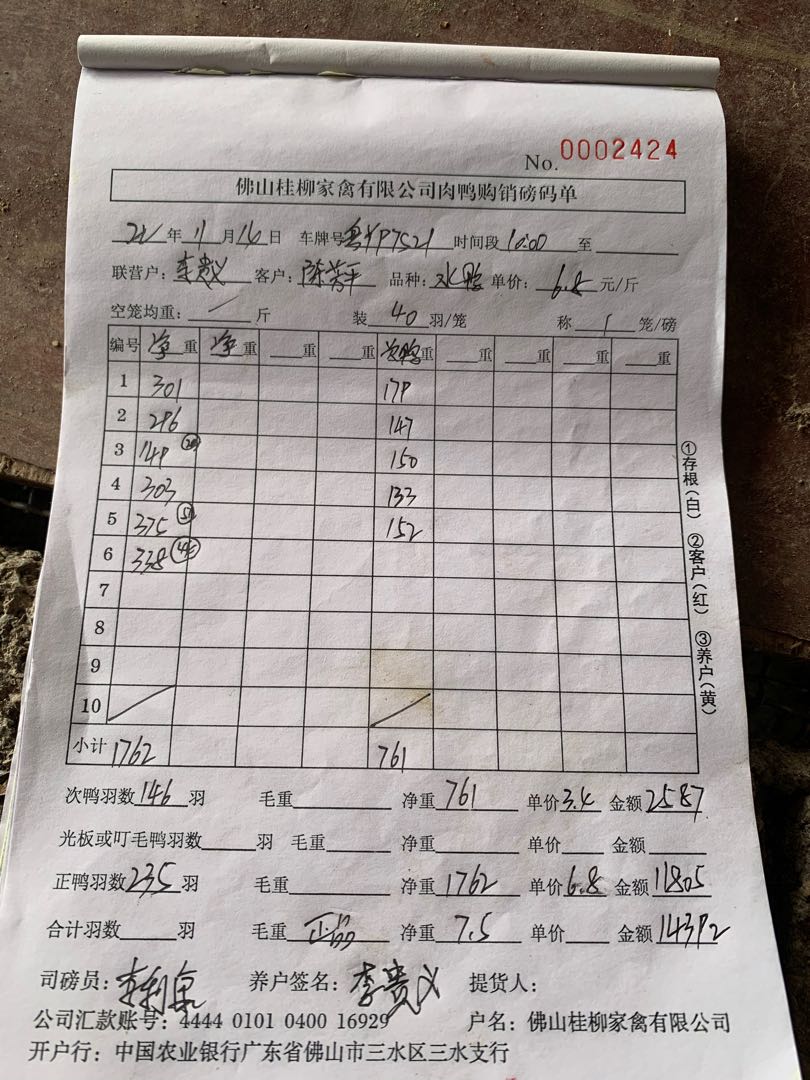 No. 0002424
佛山桂柳家禽有限公司肉鸭购销磅码单
年 11 月 14 日 车牌号 粤YP7521 时间段 10:00 至
联营户: 李贵义 客户: 陈芳平 品种: 水鸭 单价: 6.8 元/斤
空笼均重: / 斤 装 40 羽/笼 称 1 笼/磅
编号 净重 净重 重 重 次鸭重 重 重 重 重
1 301 179
2 296 147
3 149 (20) 150
4 303 133
5 375 (50) 152
6 338 (45)
7
8
9
10
小计 1762 761
次鸭羽数 146 羽 毛重 净重 761 单价 3.4 金额 2587
光板或叮毛鸭羽数 羽 毛重 净重 单价 金额
正鸭羽数 235 羽 毛重 净重 1762 单价 6.8 金额 11805
合计羽数 羽 毛重 正品 净重 7.5 单价 金额 14392
司磅员: 养户签名: 李贵义 提货人:
公司汇款账号: 4444 0101 0400 16929 户名: 佛山桂柳家禽有限公司
开户行: 中国农业银行广东省佛山市三水区三水支行
①存根(白) ②客户(红) ③养户(黄)